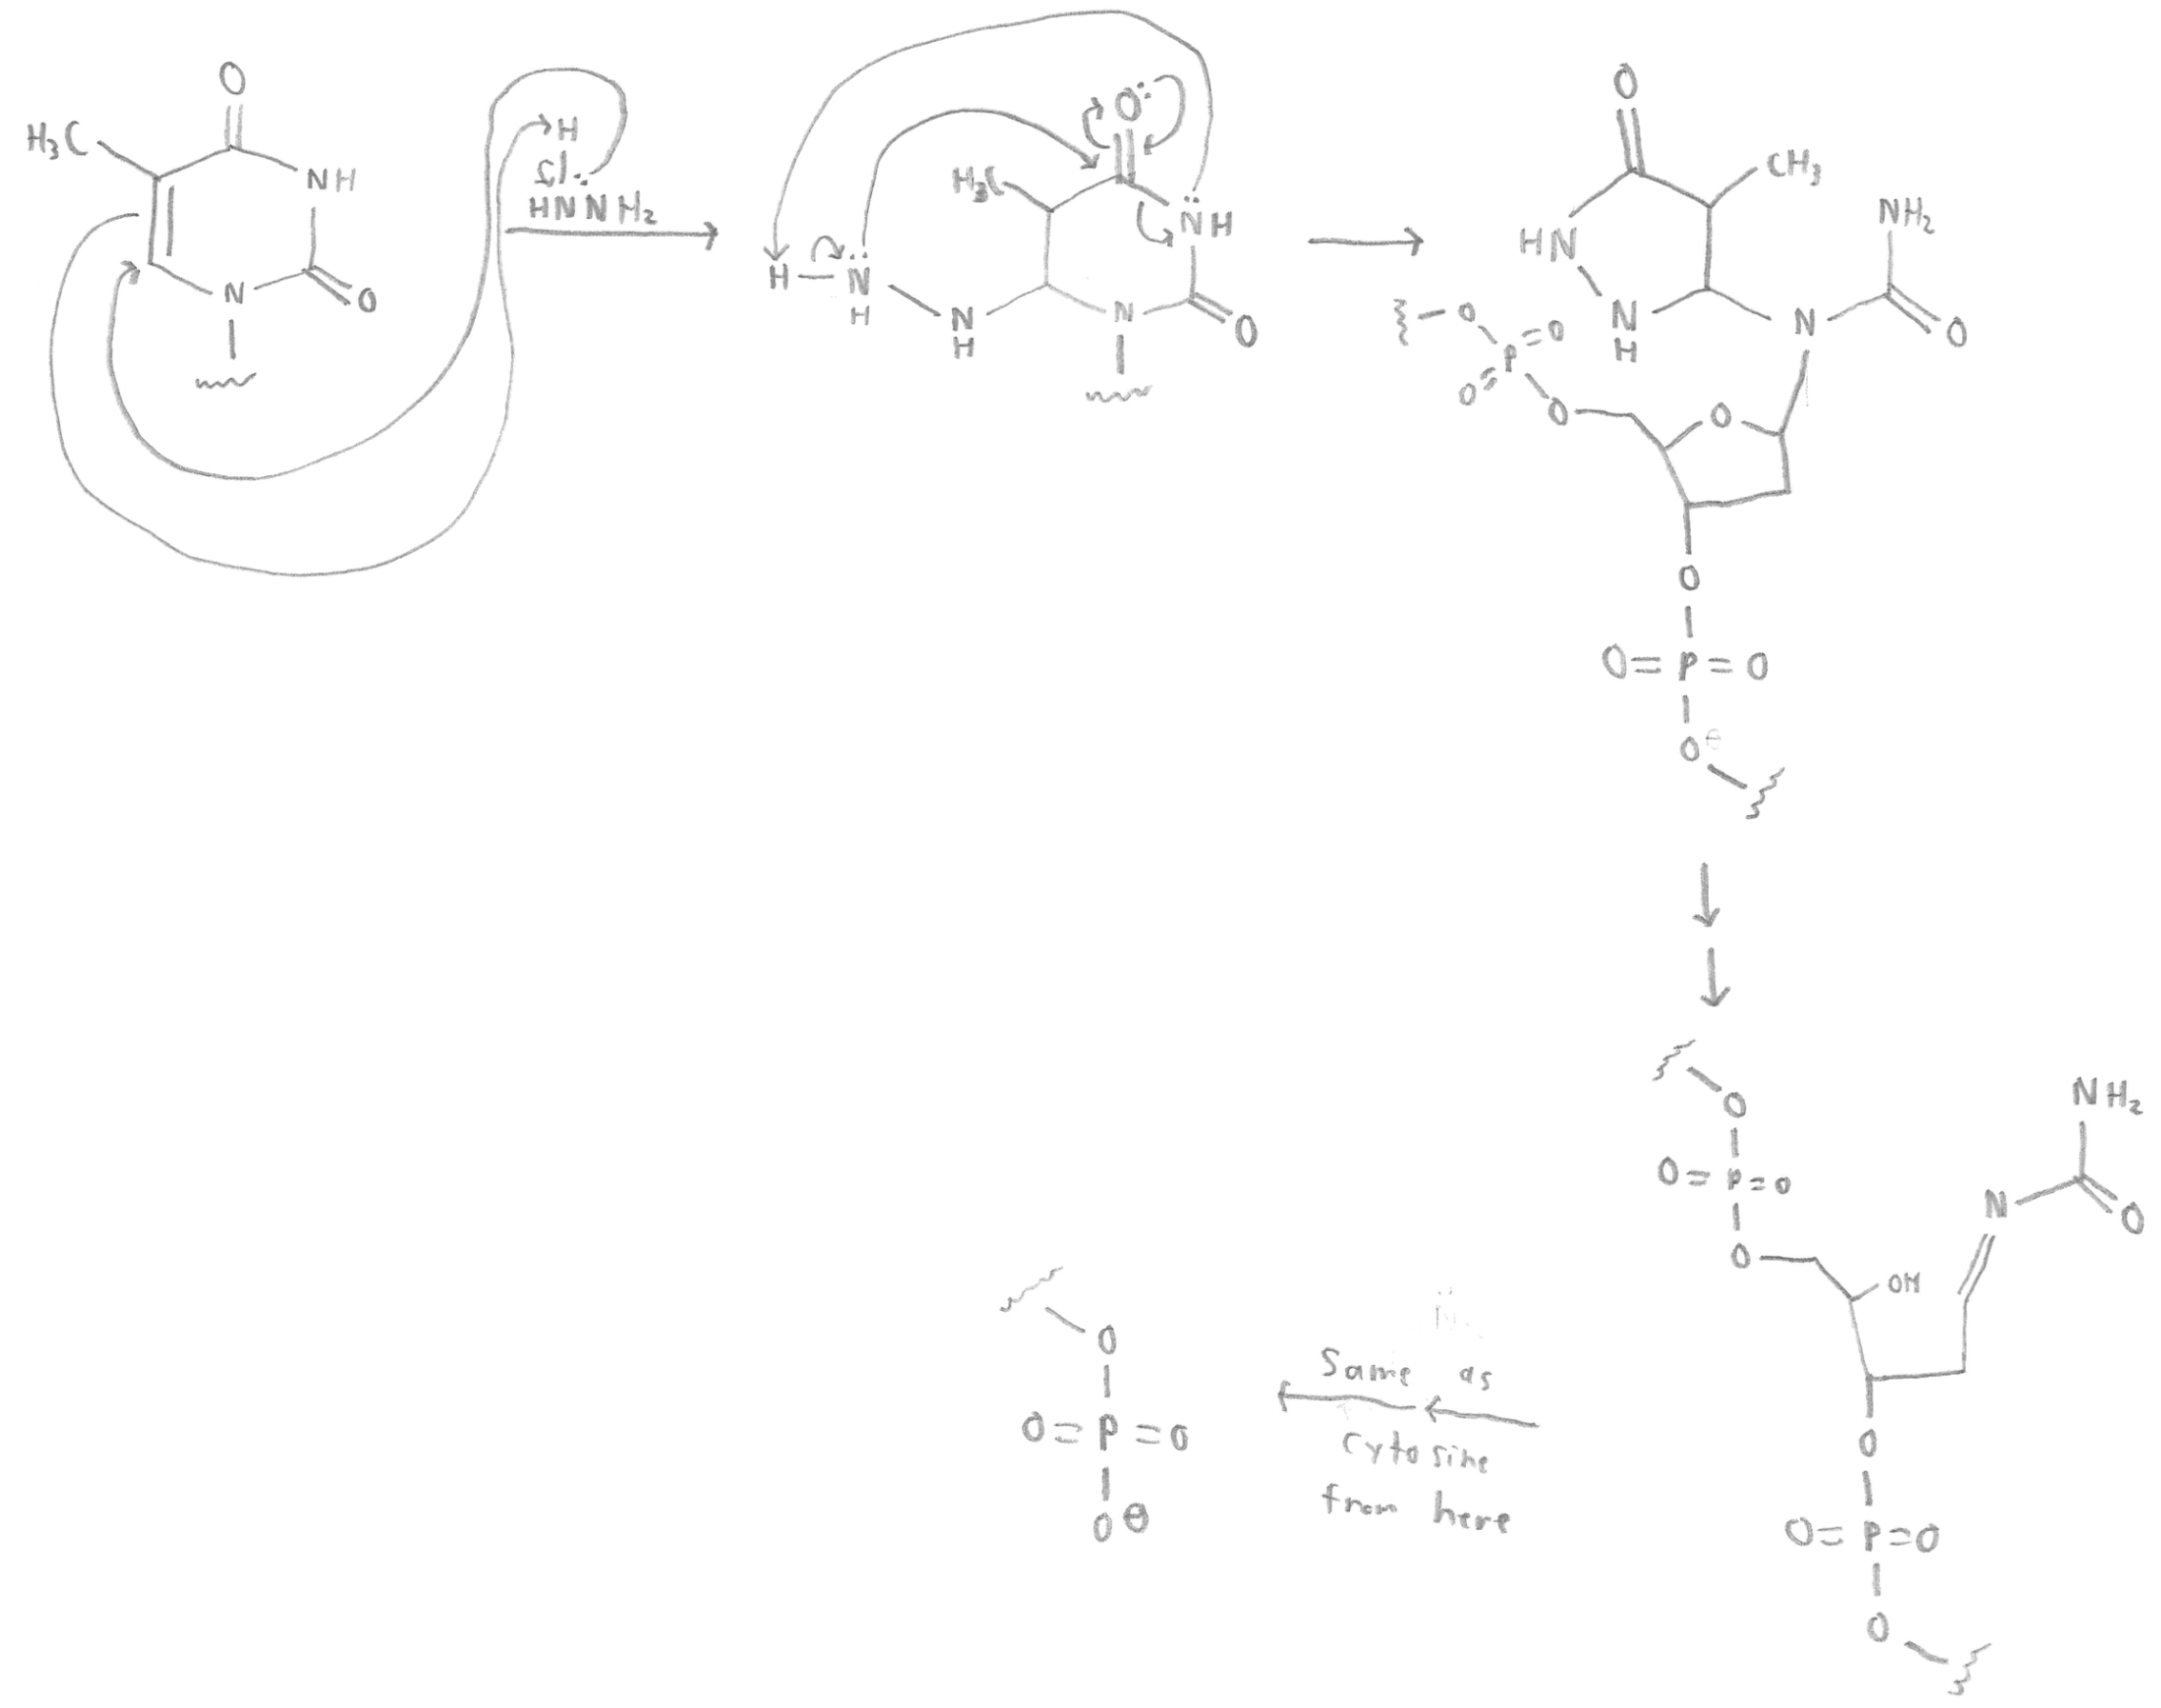 O
H₃C
NH
N
O
H
HNNH₂
O
H₃C
NH
H
N
H
N
H
N
O
O
CH₃
HN
N
H
N
NH₂
O
O
P
O
O
O
O
O
O=P=O
O⊖
O
O=P=O
O
OH
N
NH₂
O
O
O=P=O
O
Same as
Cytosine
from here
O
O=P=O
O⊖